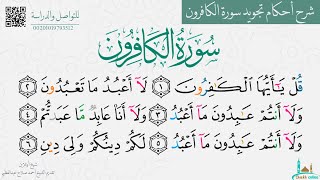 شرح أحكام تجويد سورة الكافرون
للتواصل والدراسة
00201019793512
سُورَةُ الْكَافِرُونَ
قُلْ يَٰٓأَيُّهَا ٱلْكَٰفِرُونَ ١ لَآ أَعْبُدُ مَا تَعْبُدُونَ ٢
وَلَآ أَنتُمْ عَٰبِدُونَ مَآ أَعْبُدُ ٣ وَلَآ أَنَا۠ عَابِدٌ مَّا عَبَدتُّمْ ٤
وَلَآ أَنتُمْ عَٰبِدُونَ مَآ أَعْبُدُ ٥ لَكُمْ دِينُكُمْ وَلِىَ دِينِ ٦